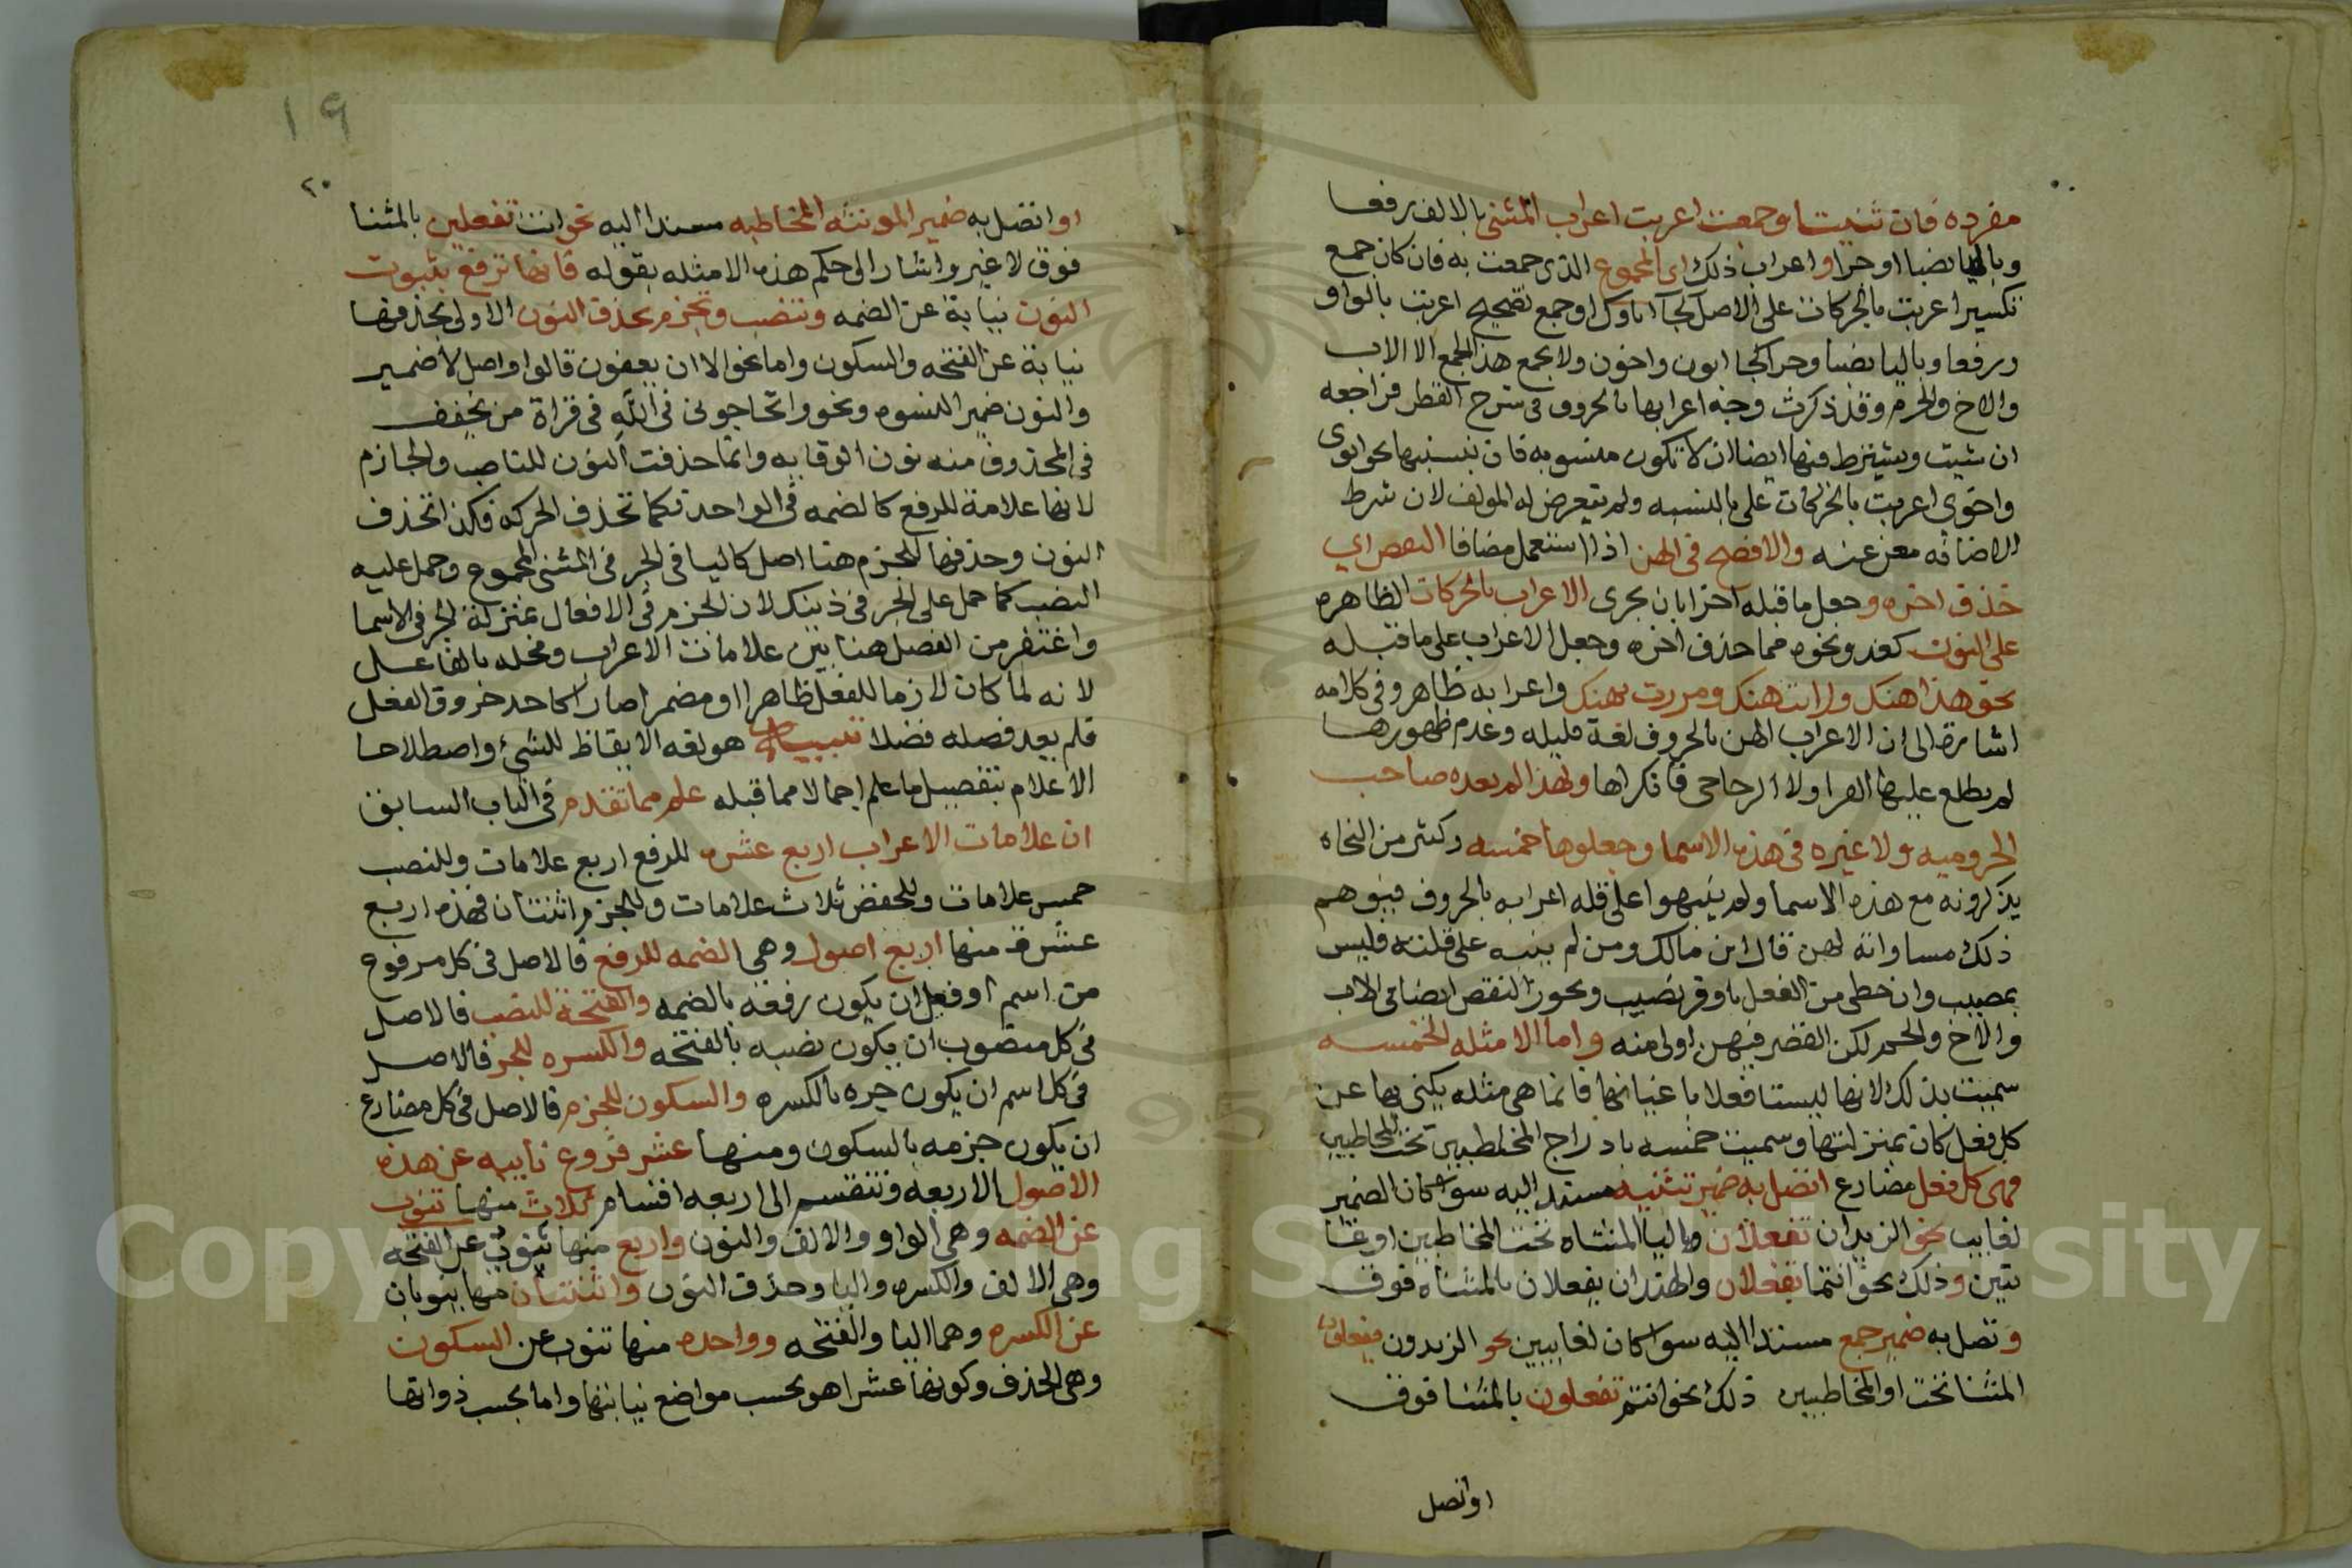 مفرده فان ثنيت او جمعت اعربت اعراب المثنى بالالف رفعا
وباليا نصبا او جرا واعراب ذلك اي المجموع الذى جمعت به فان كان جمع
تكسير اعربت بالحركات على الاصل كجا اباوك او جمع تصحيح اعربت بالواو
ورفعا وباليا نصبا وجرا كجا ابون واخون ولا يجمع هذا الجمع الا الاب
والاخ والحم وقد ذكرت وجه اعرابها بالحروف فى شرح القطر فراجعه
ان شيت ويشترط فيها ايضا ان لا تكون منسوبه فان نسبتها نحو ابوى
واخوى اعربت بالحركات على يا النسبه ولم يتعرض له المولف لان شرط
الاضافه مغن عنه والافصح فى الهن اذا استعمل مضافا النقص اي
حذف اخره وجعل ما قبله اخرا بان يجرى الاعراب بالحركات الظاهره
على النون كغد ونحوه مما حذف اخره وجعل الاعراب على ما قبله
نحو هذا هنك ورايت هنك ومررت بهنك واعرابه ظاهر وفى كلامه
اشارة الى ان الاعراب الهن بالحروف لغة قليله وعدم ظهورها
لم يطلع عليها الفرا ولا الزجاجى فانكراها ولهذا لم يعده صاحب
الجروميه ولا غيره فى هذه الاسما وجعلوها خمسه وكثير من النحاه
يذكرونه مع هذه الاسما ولم ينبهوا على قله اعرابه بالحروف فيتوهم
ذلك مساواته لهن قال ابن مالك ومن لم ينبه على قلته فليس
بمصيب وان حظى من الفضل باوفر نصيب ويجوز النقص ايضا فى الاب
والاخ والحم لكن القصر فيهن اولى منه واما الامثله الخمسه
سميت بذلك لانها ليست افعلا باعيانها فانما هى مثله يكنى بها عن
كل فعل كان بمنزلتها وسميت خمسه بادراج المخاطبتين تحت المخاطبين
فهى كل فعل مضارع اتصل به ضمير تثنيه مسند اليه سوا كان الضمير
لغايب نحو الزيدان تفعلان وباليا المثناه تحت المخاطبين او غا
يتين وذلك نحو انتما تفعلان والهندان يفعلان بالمثناه فوق
وتصل به ضمير جمع مسندا اليه سوا كان لغايبين نحو الزيدون يفعلون
المثنا تحت او المخاطبين ذلك نحو انتم تفعلون بالمثنا فوق
او اتصل
١٩
٢٠
او اتصل به ضمير المونثه المخاطبه مسندا اليه نحو انت تفعلين بالمثنا
فوق لا غير واشار الى حكم هذه الامثله بقوله فانها ترفع بثبوت
النون نيابة عن الضمه وتنصب وتجزم بحذف النون الاولى بحذفها
نيابة عن الفتحه والسكون واما نحو الا ان يعفون قالواو اصل لا ضمير
والنون ضمير النسوه ونحو واتحاجونى فى الله فى قراة من يخفف
فى المحذوف منه نون الوقايه وانما حذفت النون للناصب والجازم
لانها علامة للرفع كالضمه فى الواحد فكما تحذف الحركه فكذا تحذف
النون وحذفها للجزم هنا اصل كاليا فى الجر فى المثنى المجموع وحمل عليه
النصب كما حمل على الجر فى ذينك لان الجزم فى الافعال بمنزلة الجر فى الاسما
واغتفر من الفصل هنا بين علامات الاعراب ومحله بالفاعل
لانه لما كان لازما للفعل ظاهرا او مضمرا صار كاحد حروف الفعل
فلم يعد فصله فضلا تنبيه هو لغه الايقاظ للشئ واصطلاحا
الاعلام بتفصيل ما علم اجمالا مما قبله علم مما تقدم فى الباب السابق
ان علامات الاعراب اربع عشره للرفع اربع علامات وللنصب
خمس علامات وللخفض ثلاث علامات وللجزم اثنتان فهذه اربع
عشرة منها اربع اصول وهى الضمه للرفع فالاصل فى كل مرفوع
من اسم او فعل ان يكون رفعه بالضمه والفتحة للنصب فالاصل
فى كل منصوب ان يكون نصبه بالفتحه والكسره للجر فالاصل
فى كل اسم ان يكون جره بالكسره والسكون للجزم فالاصل فى كل مضارع
ان يكون جزمه بالسكون ومنها عشر فروع نايبه عن هذه
الاصول الاربعه وتنقسم الى اربعه اقسام ثلاث منها تنوب
عن الضمه وهى الواو والالف والنون واربع منها تنوب عن الفتحه
وهى الالف والكسره واليا وحذف النون واثنتان منها ينوبان
عن الكسره وهما اليا والفتحه وواحده منها تنوب عن السكون
وهى الحذف وكونها عشرا هو بحسب مواضع نيابتها واما بحسب ذواتها
Copyright © King Saud University